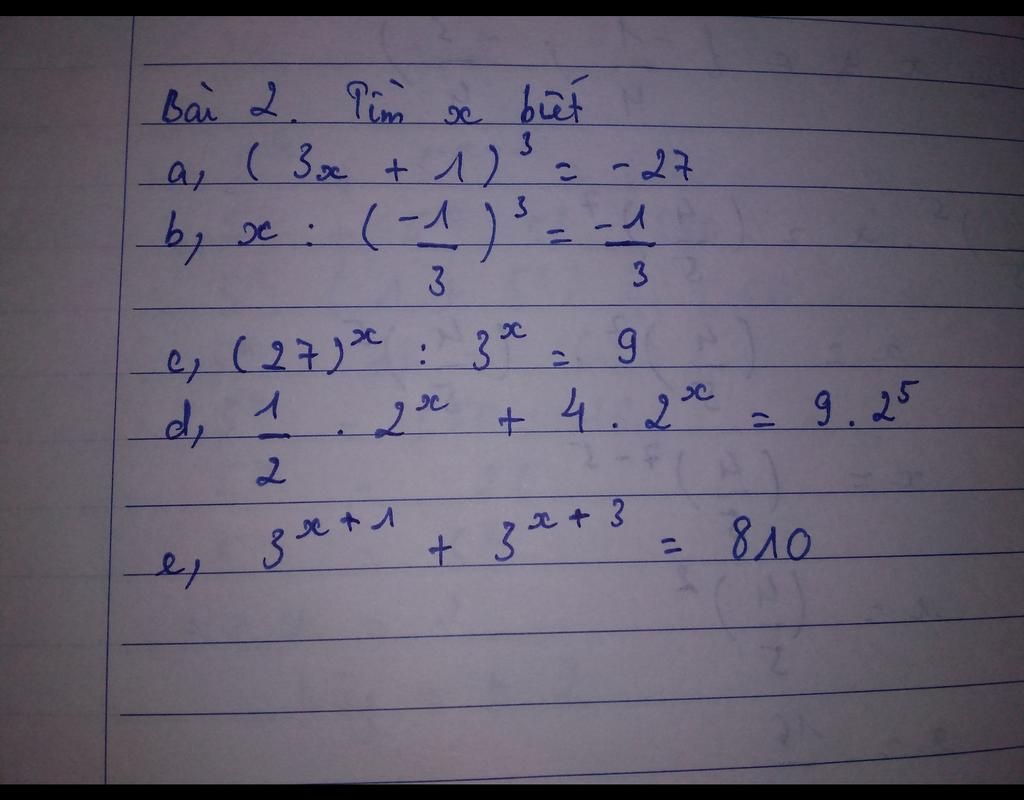 Bài 2. Tìm x biết
a, (3x + 1)³ = -27
b, x : (-1/3)³ = -1/3
c, (27)ˣ : 3ˣ = 9
d, 1/2 . 2ˣ + 4 . 2ˣ = 9 . 2⁵
e, 3ˣ⁺¹ + 3ˣ⁺³ = 810